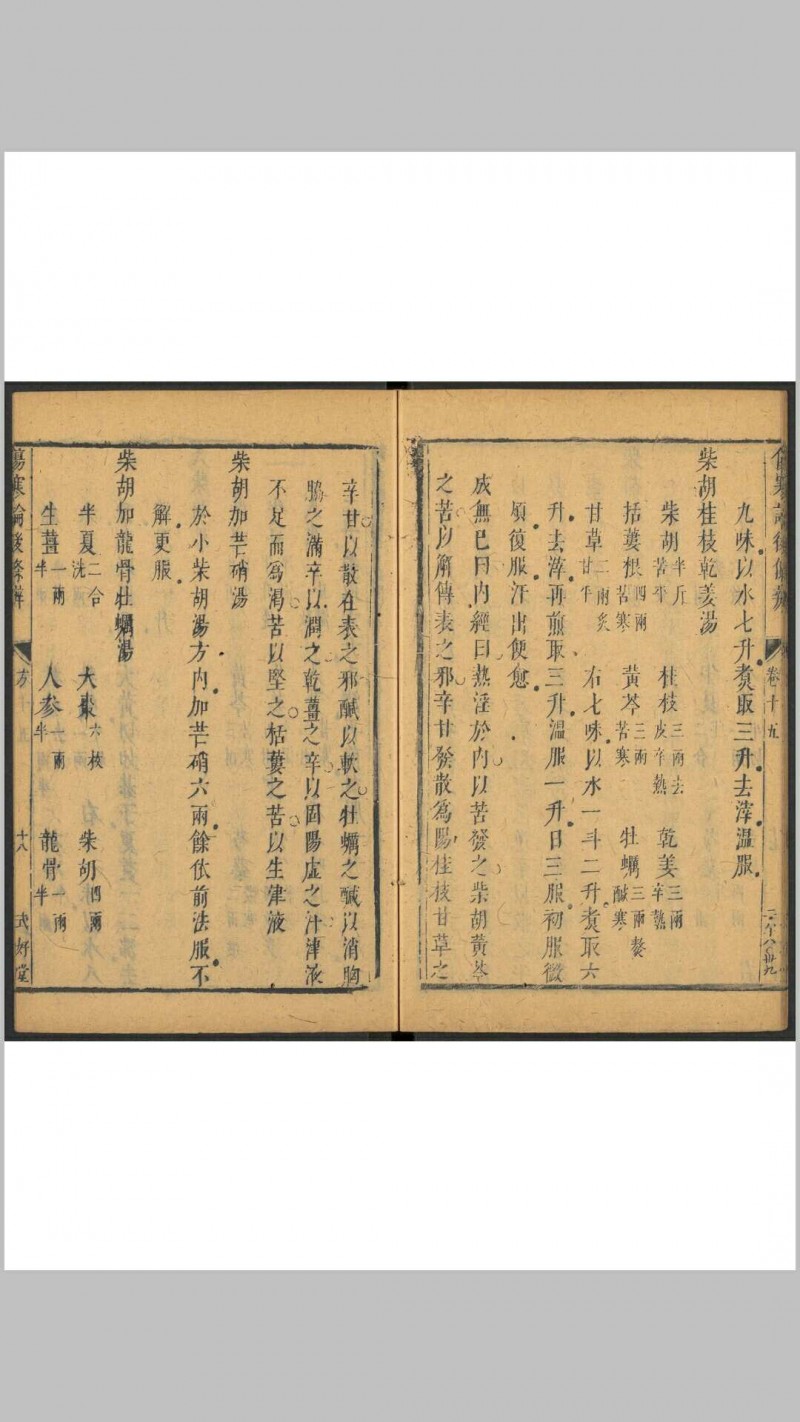 九味以水七升煑取三升去滓温服
柴胡桂枝乾姜湯
柴胡半斤苦平 桂枝三兩去皮辛熱 乾姜三兩辛熱
括蔞根四兩苦寒 黃芩三兩苦寒 牡蠣三兩熬醎寒
甘草二兩炙甘平 右七味以水一斗二升煑取六
升去滓再煎取三升温服一升日三服初服微
煩復服汗出便愈
成無已曰内經曰熱淫於内以苦發之柴胡黃芩
之苦以解傳表之邪辛甘發散爲陽桂枝甘草之
卷十五
辛甘以散在表之邪醎以軟之牡蠣之醎以消胸
脇之滿辛以潤之乾薑之辛以固陽虛之汗津液
不足而爲渴苦以堅之栝蔞之苦以生津液
柴胡加芒硝湯
於小柴胡湯方内加芒硝六兩餘依前法服不
解更服
柴胡加龍骨牡蠣湯
半夏二合洗 大棗六枚 柴胡四兩
生薑一兩半 人參一兩半 龍骨一兩半
傷寒論後條辨 方 十五 十八 式好堂